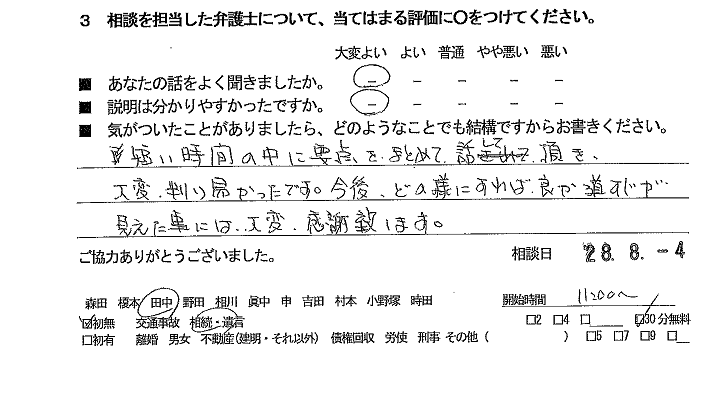 3 相談を担当した弁護士について、当てはまる評価に〇をつけてください。
大変よい よい 普通 やや悪い 悪い
■ あなたの話をよく聞きましたか。 － － － － －
■ 説明は分かりやすかったですか。 － － － － －
■ 気がついたことがありましたら、どのようなことでも結構ですからお書きください。
短い時間の中に要点をまとめて、話して頂き、
大変、判り易かったです。今後、どの様にすれば良か道すじが
見えた事には、大変、感謝致します。
ご協力ありがとうございました。 相談日 28. 8. －4
森田 榎本 田中 野田 相川 眞中 申 吉田 村本 小野塚 時田 開始時間 11:00～
☑初無 交通事故 相続・遺言 □2 □4 □____ ☑30 分無料
□初有 離婚 男女 不動産(建明・それ以外) 債権回収 労使 刑事 その他 ( ) □5 □7 □9 □__